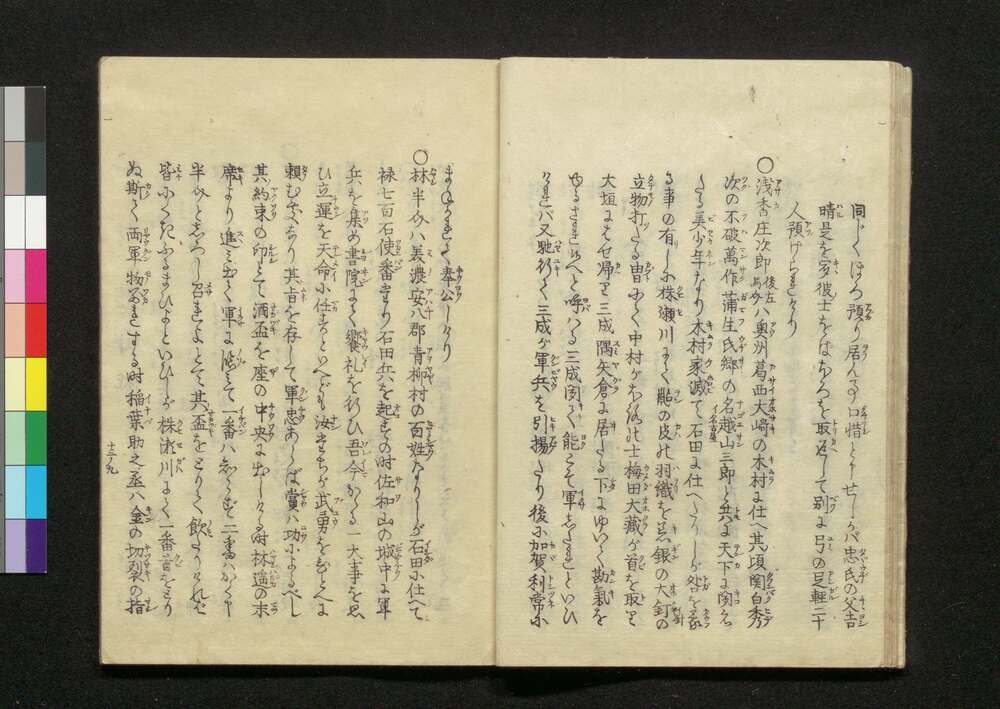 同じく
預り居
口惜
忠氏の父吉
晴是を
彼士をば
を取返して別に弓の足軽二十
人預けられけり
○浅香庄次郎後左馬助ハ奥州葛西大崎の木村に仕へ其頃関白秀
次の不破萬作蒲生氏郷の名越山三郎と共に天下に聞えし
たる美少年なり木村家滅て石田に仕へたりしが咎を
る事の有しに株瀬川にて
の皮の羽織を
銀の大釘の
立物打たる冑にて中村が
士梅田大蔵が首を取り
大垣にはせ帰り三成隅矢倉に居たる下にゆいて勘気を
ゆるされ候へと呼はる三成聞て能こそ軍したれといひ
ければ又馳行て三成が軍兵を引揚たり後に加賀利常に
まねかれて奉公しけり
○林半介ハ美濃安八郡青柳村の百姓なりしが石田に仕へて
禄七百石使番たり石田兵を起すの時佐和山の城中に軍
兵を集め書院にて饗礼を行ひ吾今かゝる一大事を思
ひ立運を天命に任すといへども汝たちが武勇をひとへに
頼む処なり其旨を存して軍忠あらば賞ハ功によるべし
其約束の印とて酒盃を座の中央に出しける時林遙の末
席より進み出て軍に臨て一番ハ
二番ハ
半介と
召れよとて其盃をとりて飲
皆
株瀬川にて一番首をとり
ぬ斯て両軍物
する時稲葉助之丞ハ金の切裂の指
十三ノ九